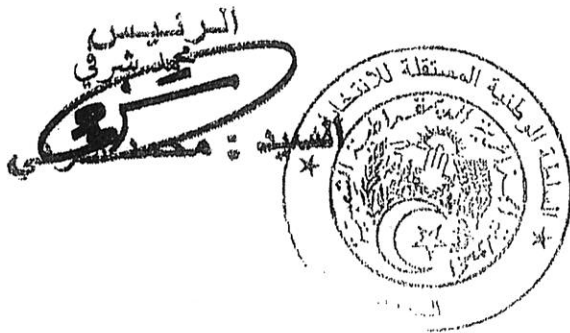 الرئيس
محمد شرفي
السيد : محمد شرفي
السلطة الوطنية المستقلة للانتخابات
الجمهورية الجزائرية الديمقراطية الشعبية